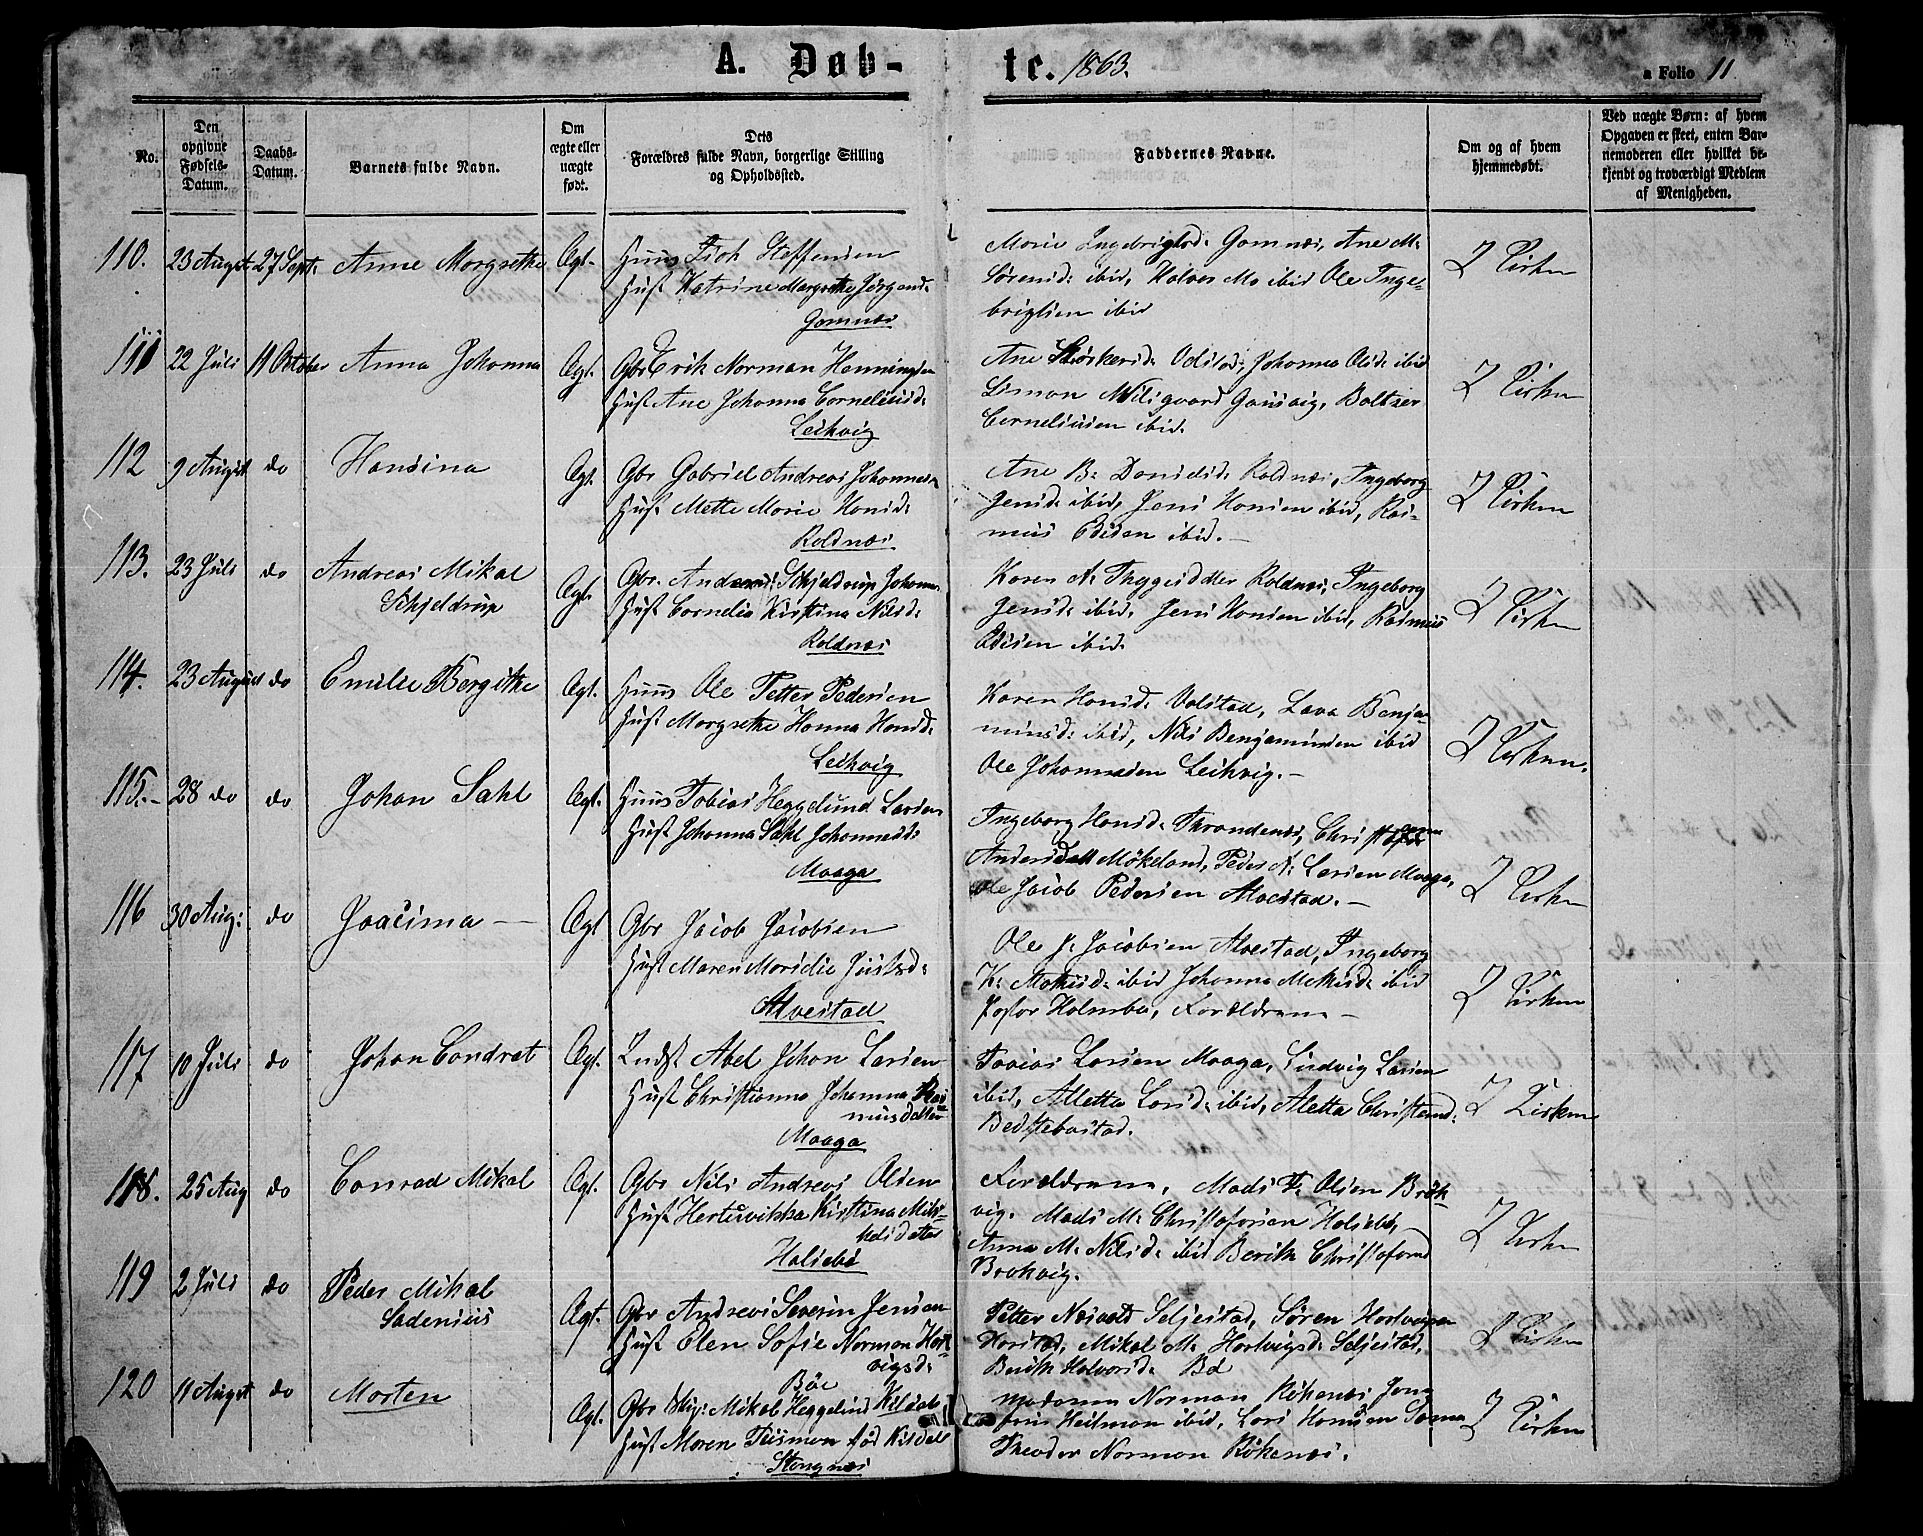 A. Døb-
te. 1863.
a Folio 11
No.
Den opgivne Fødsels-Datum.
Daabs-Datum.
Barnets fulde Navn.
Om ægte eller uægte født.
Dets Forældres fulde Navn, borgerlige Stilling og Opholdssted.
Faddernes Navne.
Om og af hvem hjemmedøbt.
Ved uægte Børn: af hvem Opgaven er skeet, enten Barnemoderen eller hvilket bekjendt og troværdigt Medlem af Menigheden.
110. 23 August 27 Sept. Anne Margrethe Ægt. Huus Steffensen
Hust Katrine Margrethe Jørgensd.
Gomnæs
Marie Gomnæs, Ane M.
Sørensd. ibid, Halvor Mo ibid Ole Inge-
brigtsen ibid
I Kirken
111 22 Juli 11 October Anna Johanna Ægt. Gbr Erik Norman Henningsen
Hust Ane Johanna Corneliusd.
Leikvig
Ane Johanna Olsd. ibid
Simon Gansvig, Baltzer
Corneliusen ibid.
I Kirken
112 9 August do Hansina Ægt. Gbr Gabriel Andreas Johannesen
Hust Mette Marie Hansd.
Roldnæs
Ane B. Danielsd. Roldnæs, Ingeborg
Jensd. ibid, Jens Hansen ibid, Ras-
mus Edisen ibid. -
I Kirken
113. 23 Juli do Andreas Mikal
Schjeldrup
Ægt. Gbr. Andreas Schjeldrup
Hust Cornelia Kistina Nilsd.
Roldnæs
Karen A. Roldnæs, Ingeborg
Jensd. ibid, Jens Hansen ibid, Rasmus
Edisen ibid.
I Kirken
114. 23 August do Emilie Bergithe Ægt. Huus Ole Petter Pedersen
Hust Margrethe Hanna Hansd.
Leikvig
Karen Hansd. Volstad, Lava Benja-
minsd. ibid, Nils Benjaminsen ibid
Ole Johannesen Leikvig. -
I Kirken.
115. - 28 do do Johan Sahl Ægt. Huus Tobias Heggelund Larsen
Hust Johanna Sahl Johannesd.
Maaga
Ingeborg Hansd. Throndenæs,
Mökeland, Peder N. Larsen Maaga,
Ole Jacob Pedersen Alvestad. -
I Kirken
116 30 Aug: do Joacima - Ægt Gbr Jacob Jacobsen
Hust Maren
Alvestad
Ole J. Jacobsen Alvestad, Ingeborg
K. ibid Johanna ibid
Forældrene -
I Kirken
117 10 Juli do Johan Condrat Ægt. Indst Abel Johan Larsen
Hust Christianna Johanna Ras-
musdatter
Maaga
Tobias Larsen Maaga, Ludvig Larsen
ibid, Alletta Larsd. ibid, Aletta
I Kirken
118. 25 Aug do Conrad Mikal Ægt. Gbr Nils Andreas Olsen
Hust Hertuvikka Kisttina Mik-
kelsdatter
Halsebö
Forældrene, Mads T. Olsen Brok-
vig. Mads M. Christofersen Halsebö,
Anna M. Nilsd. ibid Berith
Brokvig.
I Kirken
119 2 Juli do Peder Mikal
Sadenius
Ægt. Gbr Andreas Severin Jensen
Hust Elen Sofie Norman Hart-
vigsd.
Böe
Petter Seljestad, Sören Hartvigsen
Harstad, Mikal M. Hartvigsd. Seljestad,
Berith Halvorsd. Bö
I Kirken
120 11 August do Morten Ægt. Gbr Mikal Heggelund Kildal
Hust Maren født Kildal
Stangnæs
Madame Norman Rökenæs
Heilman ibid, Lars Hansen Sama
Theodor Norman Rökenæs.
I Kirken